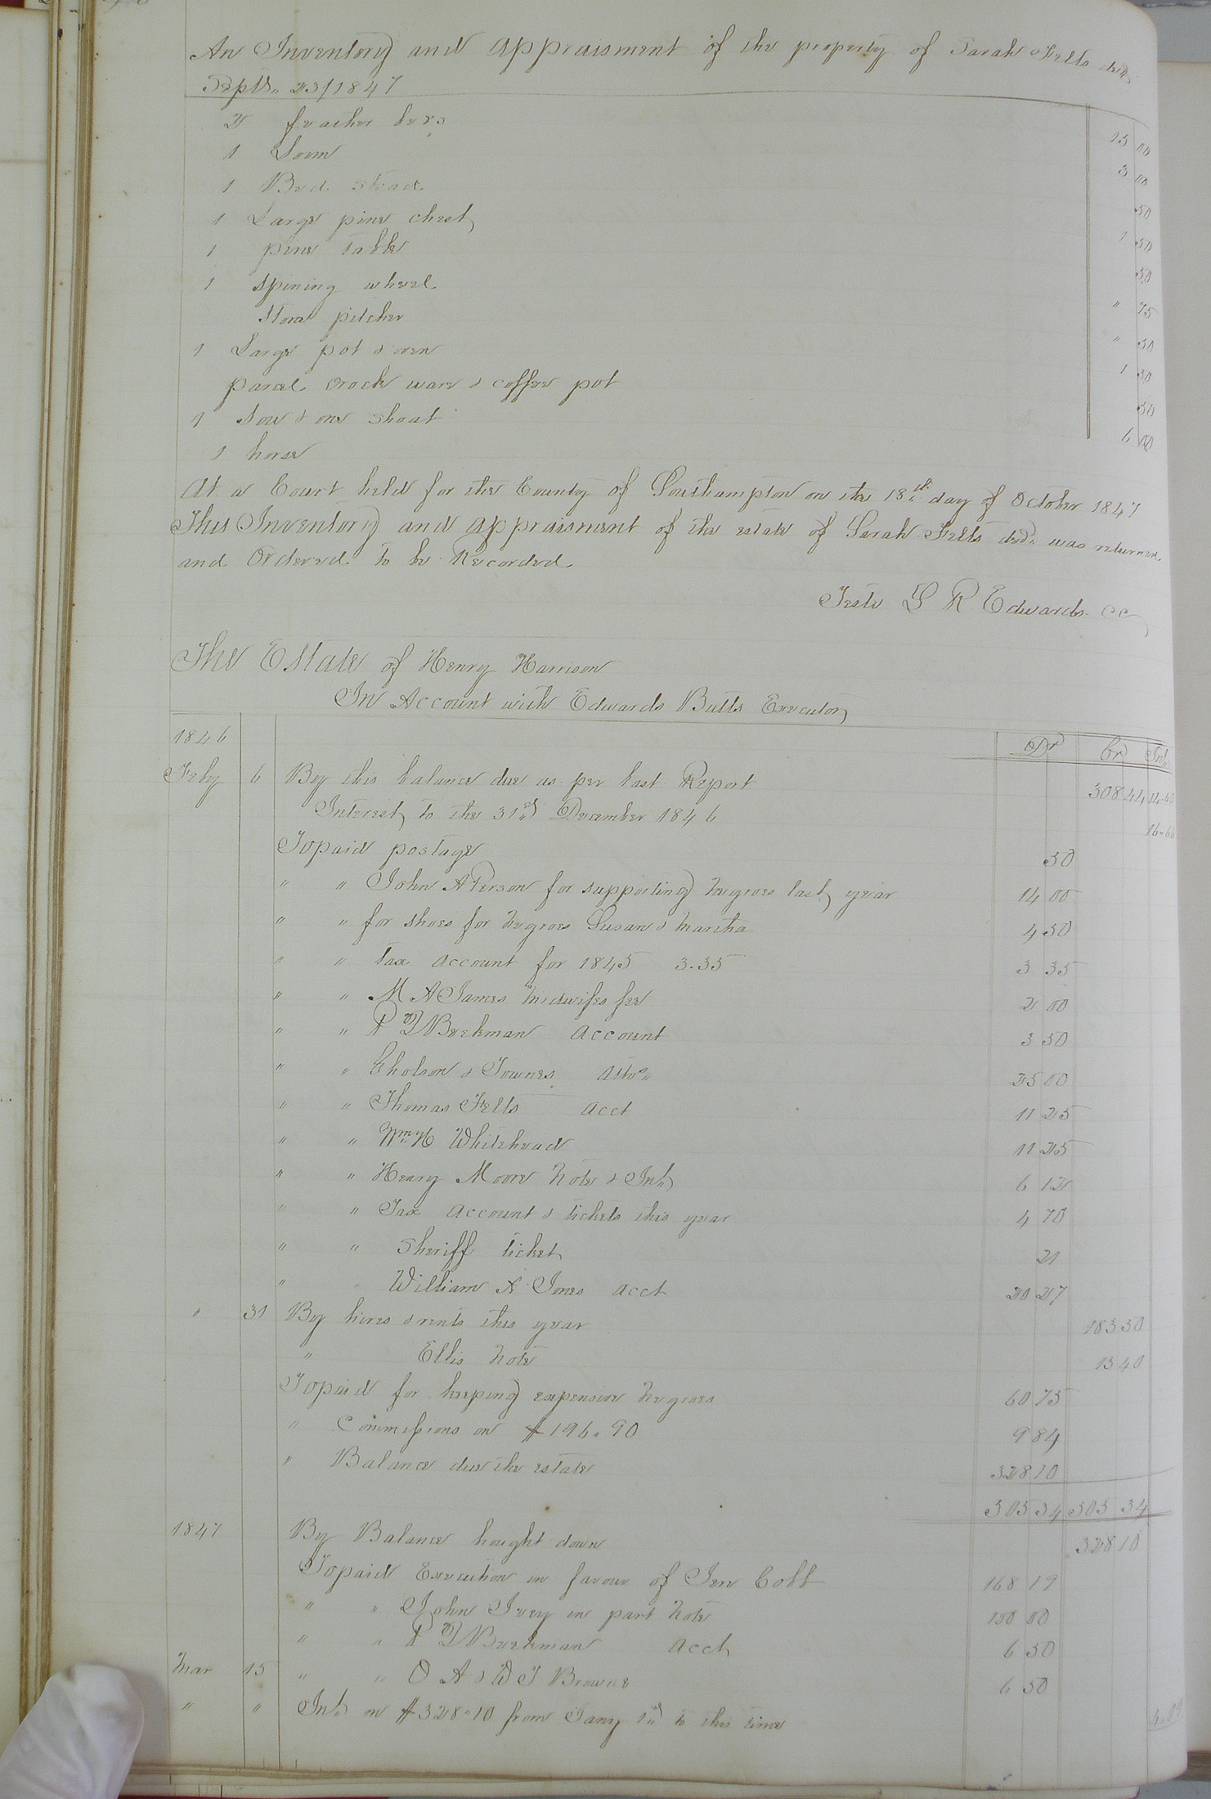 An Inventory and Appraisment of the property of Sarah Felts decd.
Septr. 23/1847
2 feather beds 15 00
1 Loom 3 00
1 Bed stead 50
1 Large pine chest 1 50
1 pine table 50
1 spining wheel " 75
Stone pitcher " 50
1 Large pot & oven 1 50
parcel crock ware & coffee pot 50
1 Sow & one shoat 6 00
1 horse
At a Court held for the County of Southampton on the 18th day of October 1847
This Inventory and Appraisment of the estate of Sarah Felts decd. was returned
and Ordered to be Recorded.
Teste L R Edwards CC
The Estate of Henry Harrison
In Account with Edwards Butts Executor
1846 Dr Cr Int.
Feby 6 By this balance due as per last Report 308 44
Interest to the 31st December 1846 16.66
To paid postage 50
" " John A Person for supporting negroes last year 14 00
" " for shoes for negroes Susan & Martha 4 50
" " Tax account for 1845 3.35 3 35
" " M A James midwifes fee 2 00
" " Account 3 50
" " Gholson & Townes Atto. 25 00
" " Thomas Felts acct 11 25
" " Wm. H Whitehead 11 25
" " Henry Moore note & Int. 6 12
" " Tax account & tickets this year 4 70
" " Sheriff ticket 21
" William A Jones acct 20 27
" 31 By hires & rents this year 183 50
" Ellis note 13 40
To paid for keeping expensive negroes 60 75
" Commissions on $196.90 9 84
" Balance due the estate 328 10
505 34 505 34
1847 By Balance bought down 328 10
To paid Execution in favour of Cobb 168 19
" " John Ivey in part note 150 00
" " acct 6 50
Mar 15 " " O A & W T Browne 6 50
" " Int. on $328.10 from Jany 1st to this time